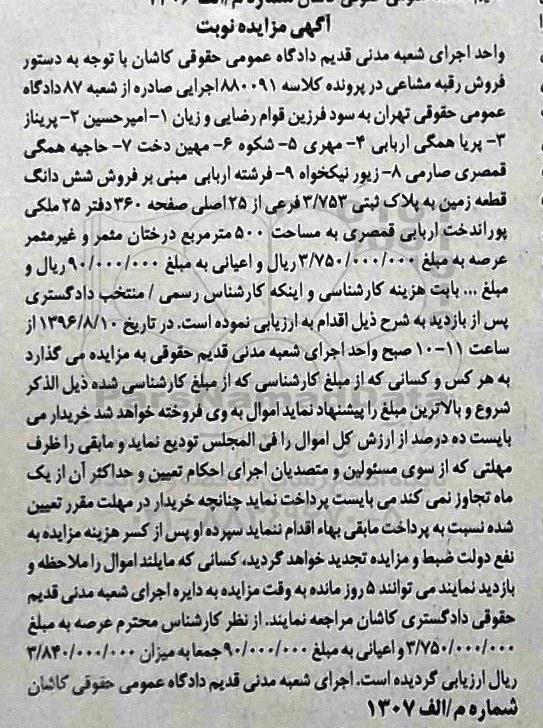 آگهی مزایده نوبت
واحد اجرای شعبه مدنی قدیم دادگاه عمومی حقوقی کاشان با توجه به دستور
فروش رقبه مشاعی در پرونده کلاسه ۸۸۰۰۹۱ اجرایی صادره از شعبه ۸۷ دادگاه
عمومی حقوقی تهران به سود فرزین قوام رضایی و زیان ۱- امیرحسین ۲- پریناز
۳- پریا همگی اربابی ۴- مهری ۵- شکوه ۶- مهین دخت ۷- حاجیه همگی
قمصری صارمی ۸- زیور نیکخواه ۹- فرشته اربابی مبنی بر فروش شش دانگ
قطعه زمین به پلاک ثبتی ۳/۷۵۳ فرعی از ۲۵ اصلی صفحه ۳۶۰ دفتر ۲۵ ملکی
پوراندخت اربابی قمصری به مساحت ۵۰۰ مترمربع درختان مثمر و غیرمثمر
عرصه به مبلغ ۳/۷۵۰/۰۰۰/۰۰۰ ریال و اعیانی به مبلغ ۹۰/۰۰۰/۰۰۰ ریال و
مبلغ ... بابت هزینه کارشناسی و اینکه کارشناس رسمی / منتخب دادگستری
پس از بازدید به شرح ذیل اقدام به ارزیابی نموده است. در تاریخ ۱۳۹۶/۸/۱۰ از
ساعت ۱۱-۱۰ صبح واحد اجرای شعبه مدنی قدیم حقوقی به مزایده می گذارد
به هر کس و کسانی که از مبلغ کارشناسی که از مبلغ کارشناسی شده ذیل الذکر
شروع و بالاترین مبلغ را پیشنهاد نماید اموال به وی فروخته خواهد شد خریدار می
بایست ده درصد از ارزش کل اموال را فی المجلس تودیع نماید و مابقی را ظرف
مهلتی که از سوی مسئولین و متصدیان اجرای احکام تعیین و حداکثر آن از یک
ماه تجاوز نمی کند می بایست پرداخت نماید چنانچه خریدار در مهلت مقرر تعیین
شده نسبت به پرداخت مابقی بهاء اقدام ننماید سپرده او پس از کسر هزینه مزایده به
نفع دولت ضبط و مزایده تجدید خواهد گردید، کسانی که مایلند اموال را ملاحظه و
بازدید نمایند می توانند ۵ روز مانده به وقت مزایده به دایره اجرای شعبه مدنی قدیم
حقوقی دادگستری کاشان مراجعه نمایند. از نظر کارشناس محترم عرصه به مبلغ
۳/۷۵۰/۰۰۰/۰۰۰ و اعیانی به مبلغ ۹۰/۰۰۰/۰۰۰ جمعا به میزان ۳/۸۴۰/۰۰۰/۰۰۰
ریال ارزیابی گردیده است. اجرای شعبه مدنی قدیم دادگاه عمومی حقوقی کاشان
شماره م/الف ۱۳۰۷